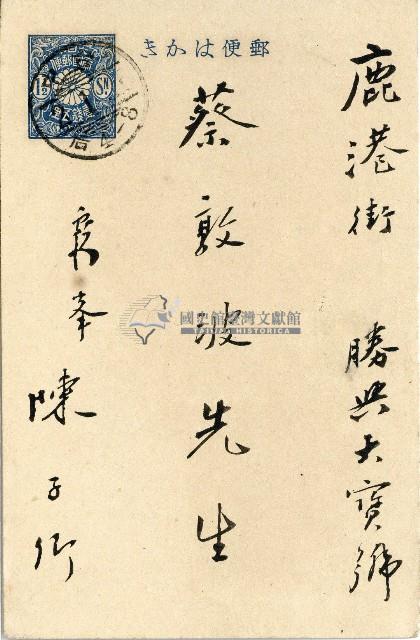 郵便はかき
鹿港街 勝興大寶號
蔡敦波先生
霧峯 陳子衍
國史館臺灣文獻館
TAIWAN HISTORICA
1½ Sn